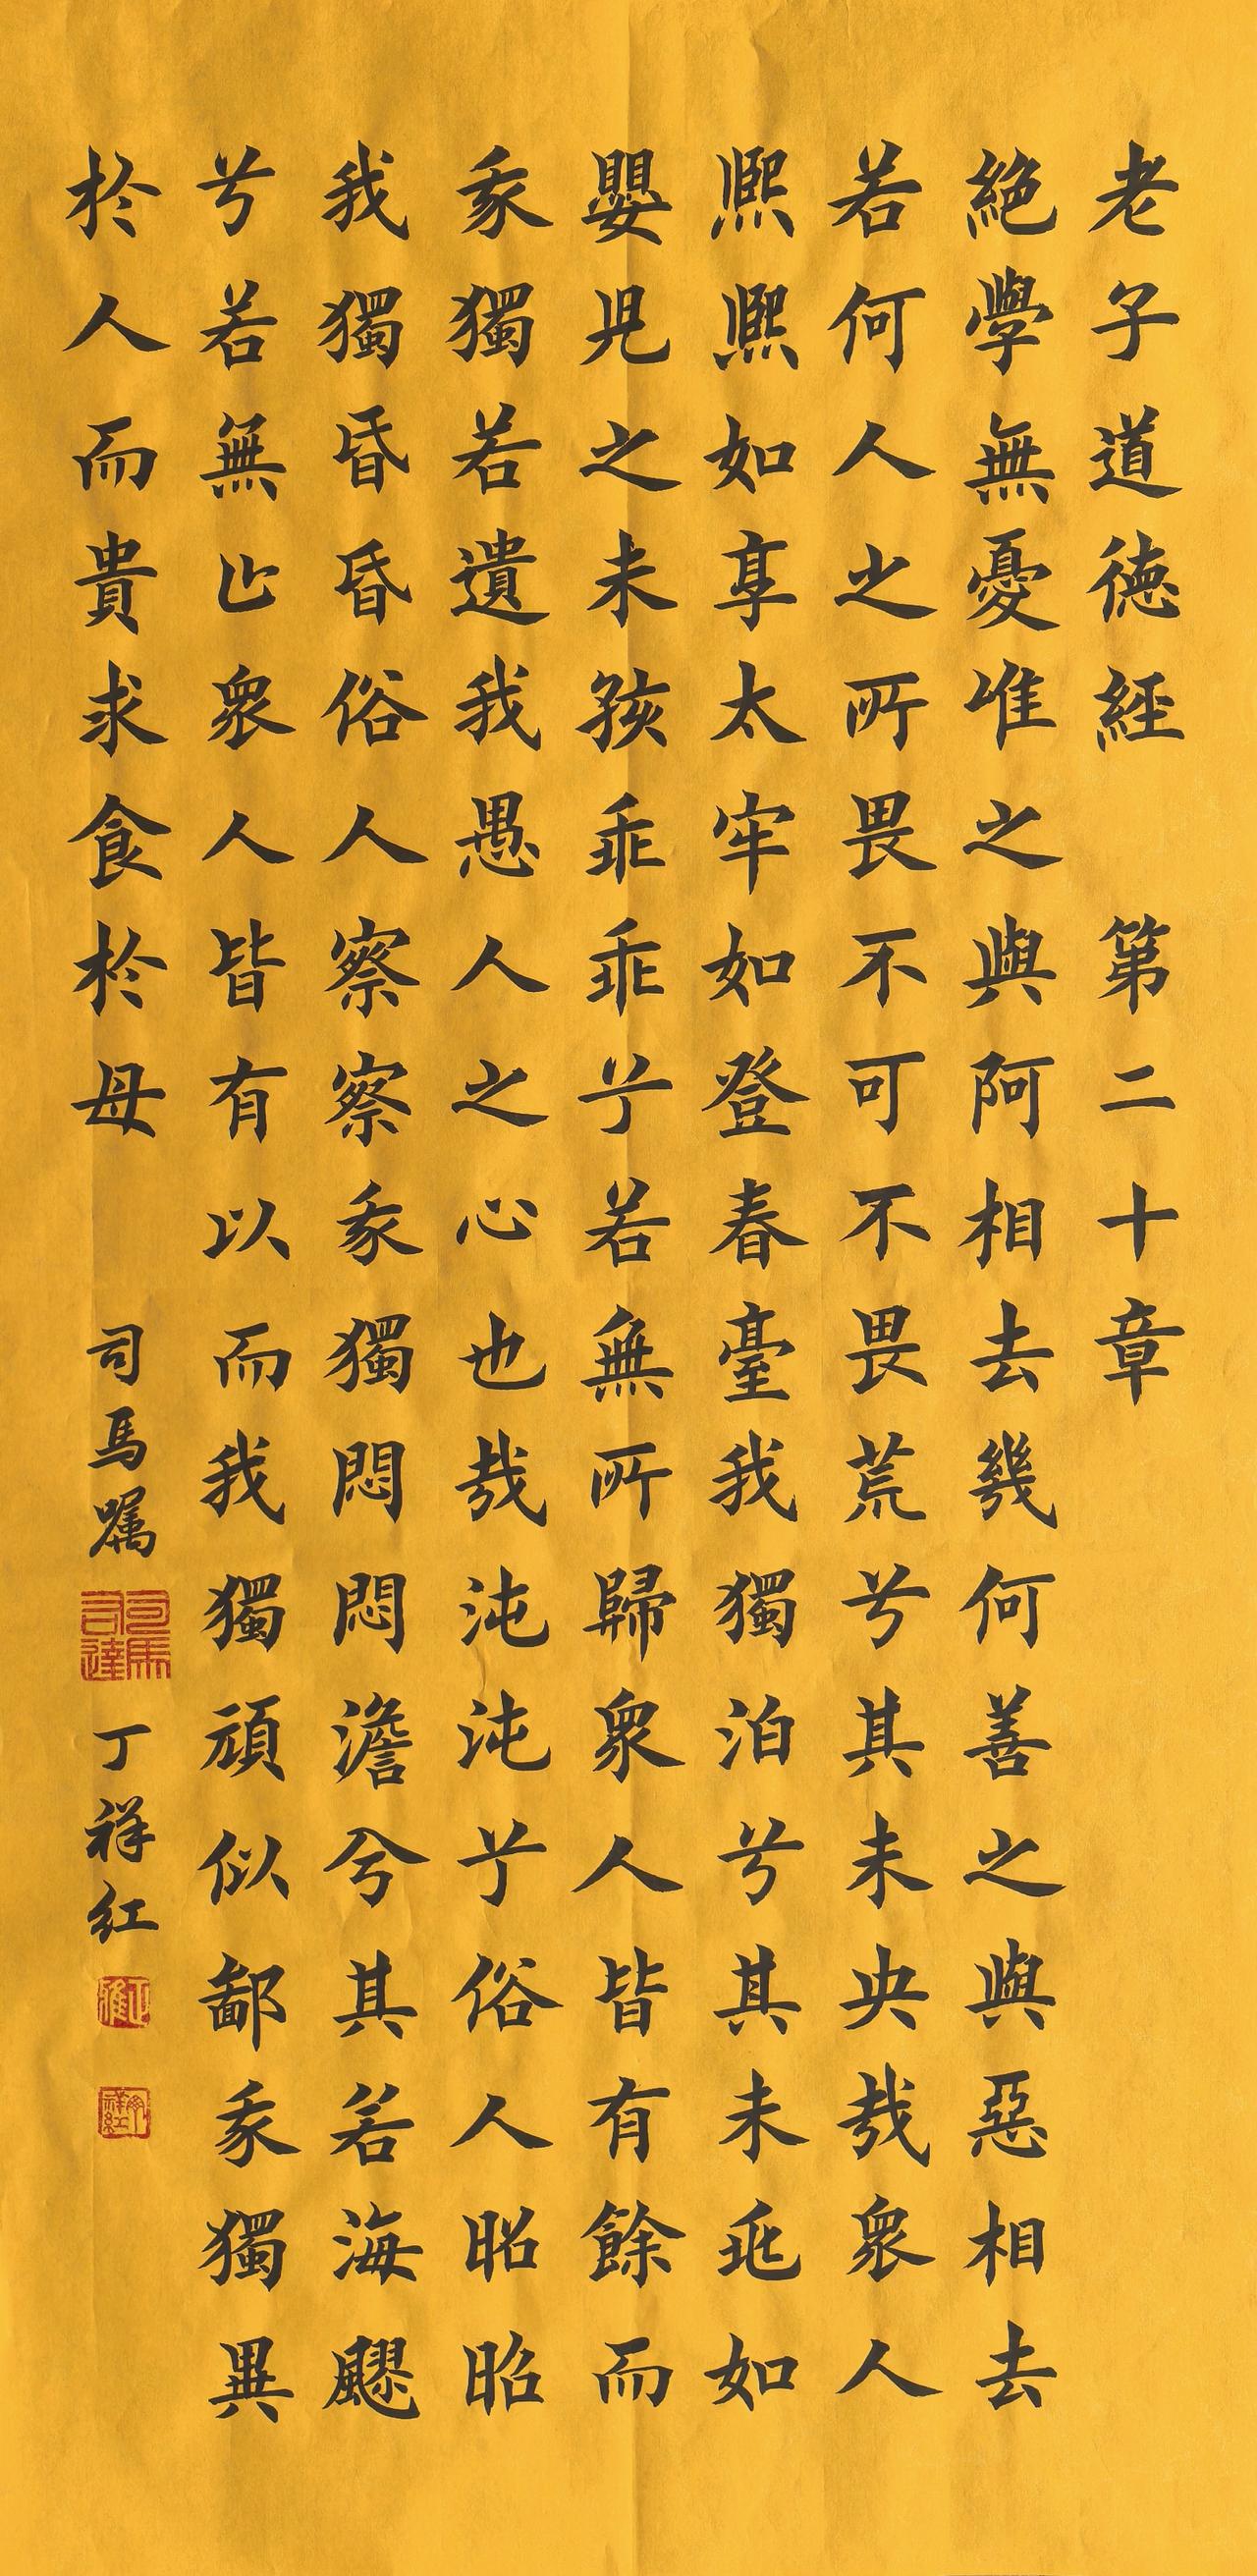 老子道德經 第二十章
絕學無憂唯之與阿相去幾何善之與惡相去
若何人之所畏不可不畏荒兮其未央哉衆人
熙熙如享太牢如登春臺我獨泊兮其未兆如
嬰兒之未孩乖乖兮若無所歸衆人皆有餘而
我獨若遺我愚人之心也哉沌沌兮俗人昭昭
我獨昏昏俗人察察我獨悶悶澹兮其若海飂
兮若無止衆人皆有以而我獨頑似鄙我獨異
於人而貴求食於母 司馬嘱 丁祥红